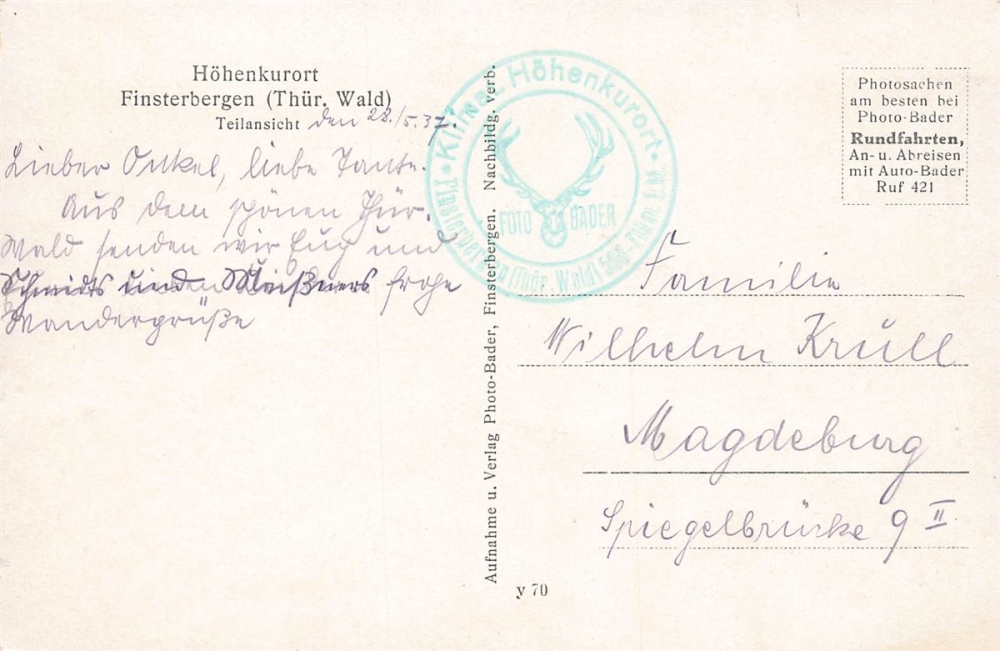 Höhenkurort
Finsterbergen (Thür. Wald)
Teilansicht den 28./5.37.
Lieber Onkel, liebe Tante.
Aus dem schönen Thür.
Wald senden wir Euch und
Schmidts und Meißners frohe
Wandergrüße
Aufnahme u. Verlag Photo-Bader, Finsterbergen. Nachbildg. verb.
Klimat. Höhenkurort
FOTO BADER
Finsterbergen (Thür. Wald)
Photosachen
am besten bei
Photo-Bader
Rundfahrten,
An- u. Abreisen
mit Auto-Bader
Ruf 421
Familie
Wilhelm Krüll
Magdeburg
Spiegelbrücke 9 II
y 70